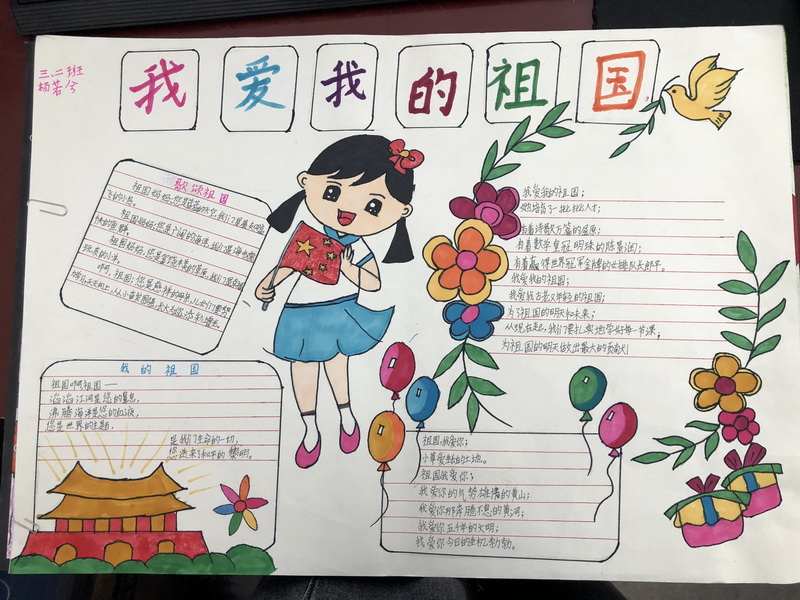 三、二班
杨若兮
我爱我的祖国
歌颂祖国
祖国妈妈:您是蓝蓝的天空,我们是
飞的小鸟。
祖国妈妈,您是宁涌的海洋,我们是海中愉
快的鱼群。
祖国妈妈,您是
啊,祖国:您是慈祥的母亲,
我的祖国
祖国啊祖国——
滔滔江河是您的气息,
沸腾海洋是您的血液,
您是世界的主题,
是我们生命的一切,
您迷来了和平的黎明。
我爱我的祖国;
她培育了一批批人才;
有着诗歌万篇的屈原;
有着数学皇冠明珠的陈景润;
有着赢得世界冠军金牌的女排队长郎平。
我爱我的祖国;
我爱我古老又年轻的祖国;
为了祖国的明天和未来;
从现在起,我们要扎实地学好每一节课,
为祖国的明天做出最大的贡献!
祖国,我爱你;
小草爱
的土地。
祖国我爱你;
我爱你的气势雄伟的黄山;
我爱你那奔腾不息的黄河;
我爱你五千年的文明;
我爱你今日的生机勃勃。